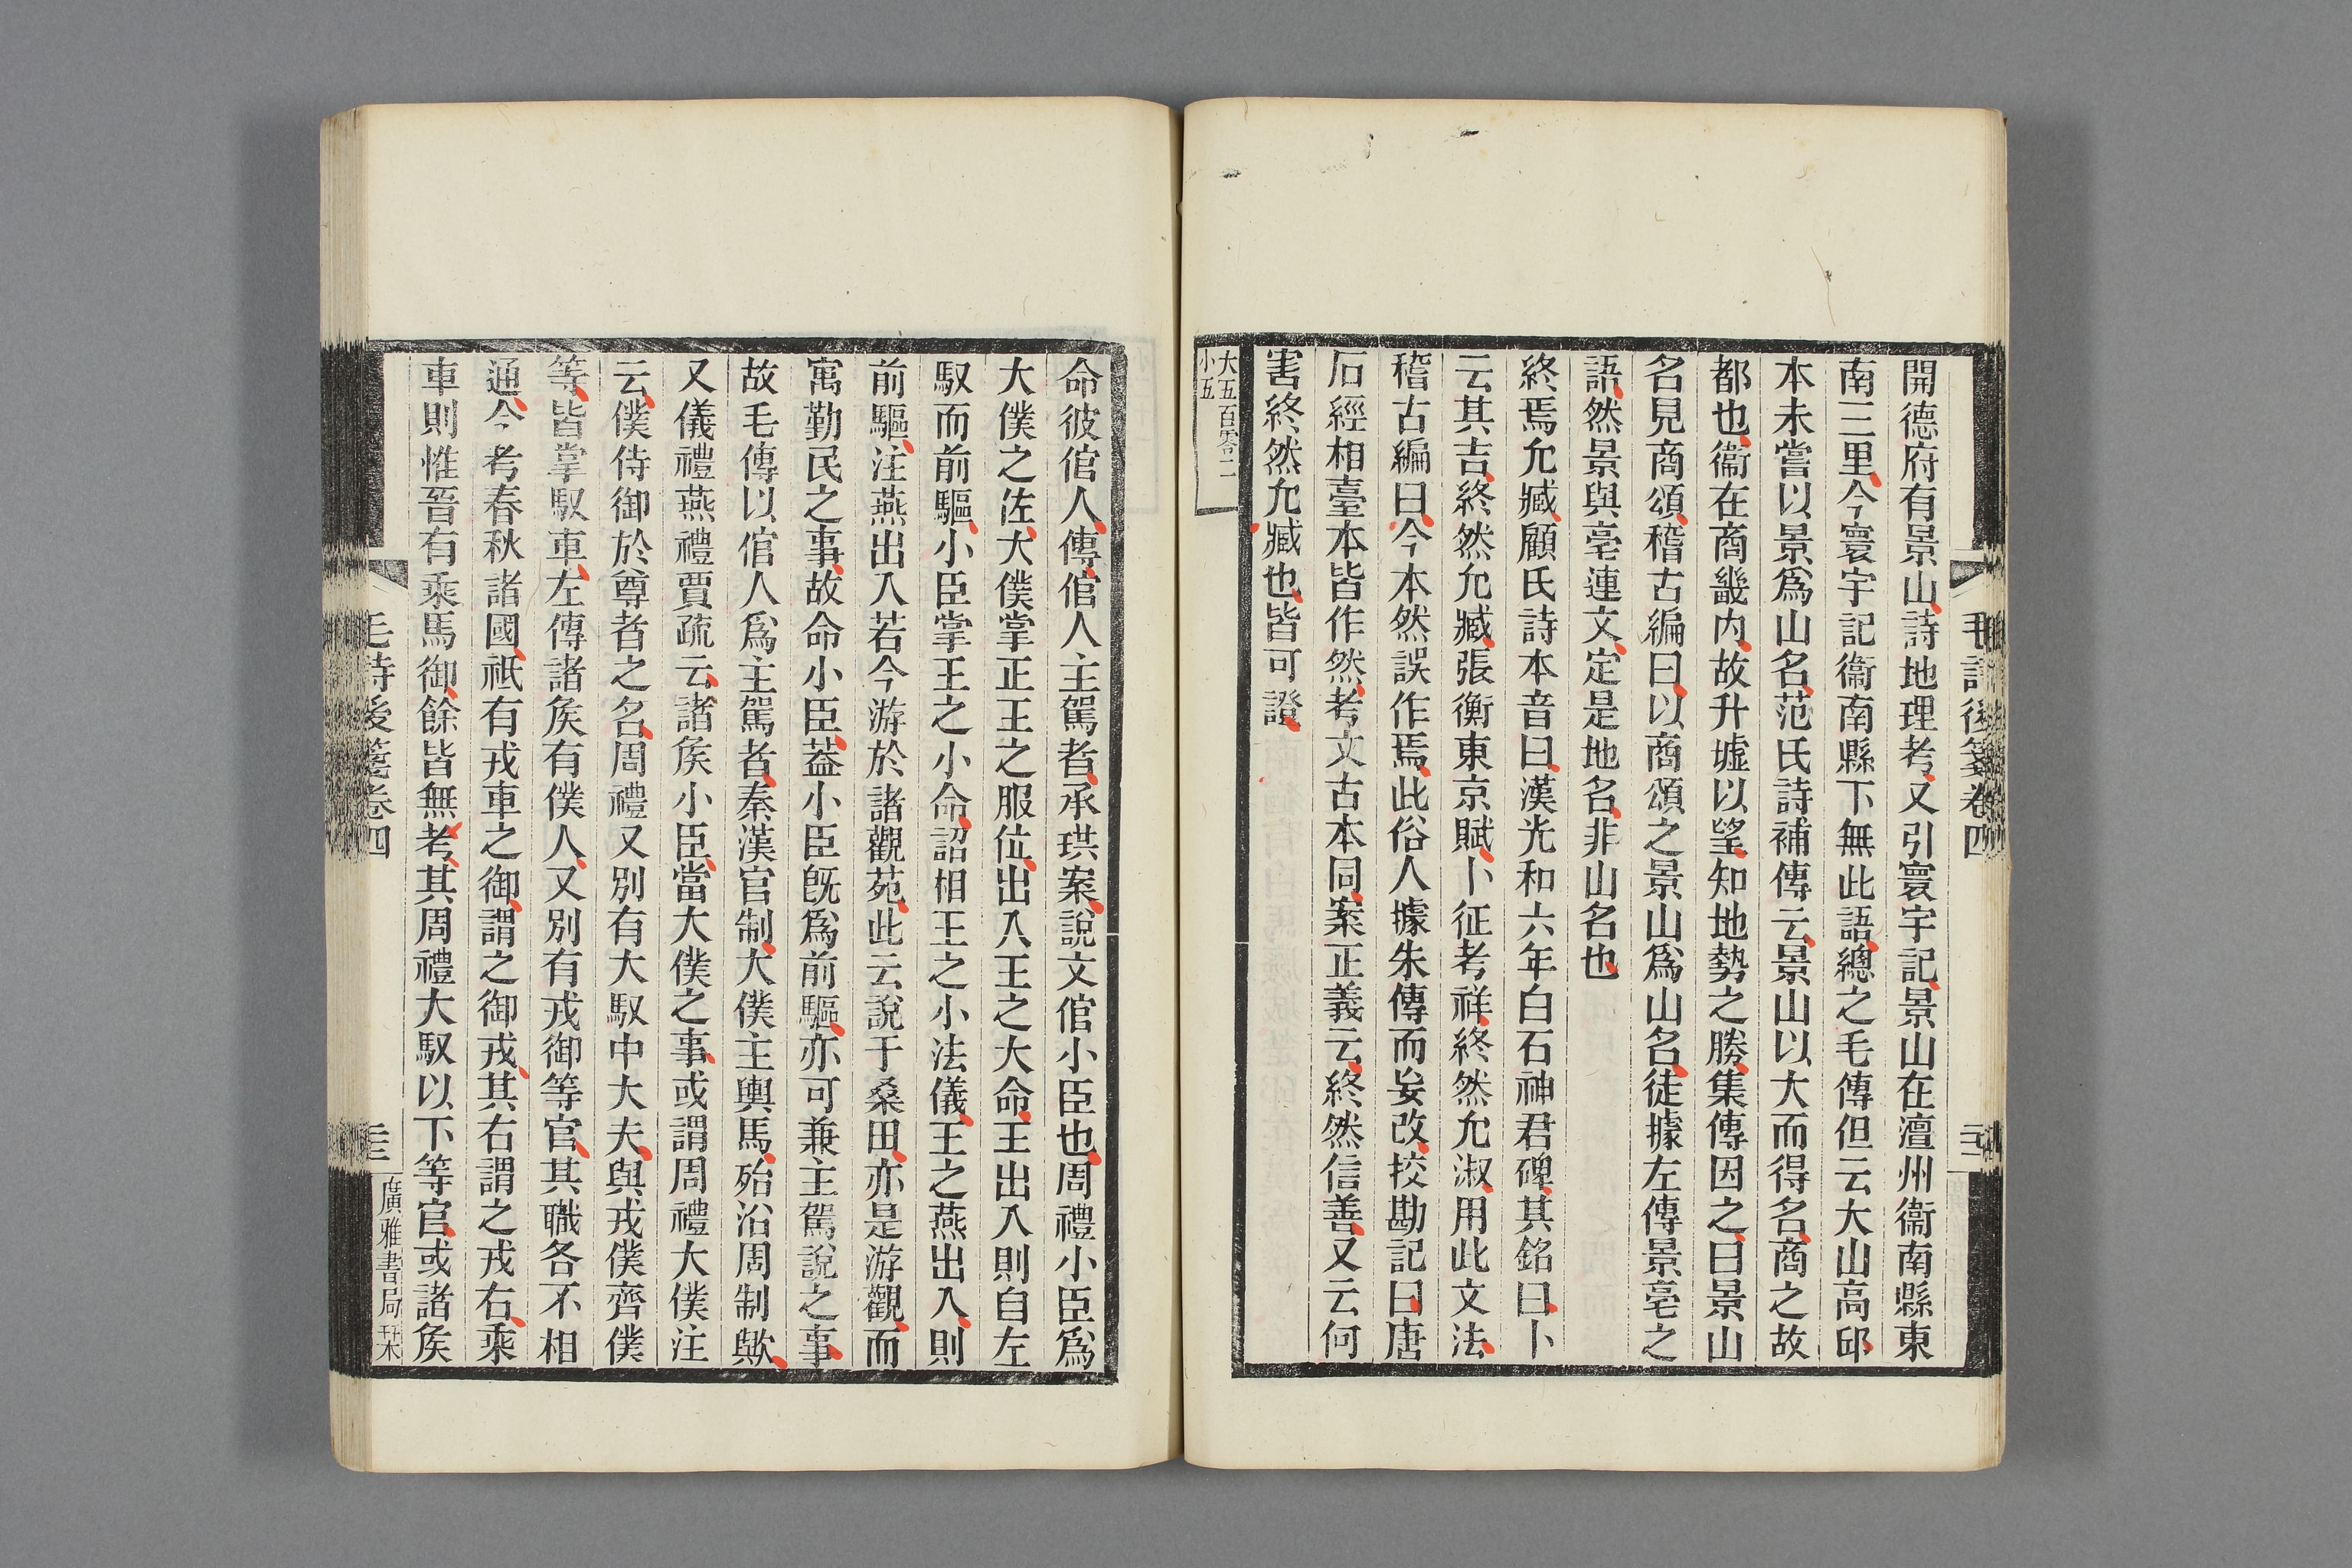 開德府有景山詩地理考又引寰宇記景山在澶州衞南縣東
南三里今寰宇記衞南縣下無此語總之毛傳但云大山高邱
本未嘗以景爲山名范氏詩補傳云景山以大而得名商之故
都也衞在商畿内故升墟以望知地勢之勝集傳因之曰景山
名見商頌稽古編曰以商頌之景山爲山名徒據左傳景亳之
語然景與亳連文定是地名非山名也
終焉允臧顧氏詩本音曰漢光和六年白石神君碑其銘曰卜
云其吉終然允臧張衡東京賦卜征考祥終然允淑用此文法
稽古編曰今本然誤作焉此俗人據朱傳而妄改挍勘記曰唐
石經相臺本皆作然考文古本同案正義云終然信善又云何
害終然允臧也皆可證
大五百零二
小五
毛詩後箋卷四
命彼倌人傳倌人主駕者承珙案說文倌小臣也周禮小臣爲
大僕之佐大僕掌正王之服位出入王之大命王出入則自左
馭而前驅小臣掌王之小命詔相王之小法儀王之燕出入則
前驅注燕出入若今游於諸觀苑此云說于桑田亦是游觀而
寓勤民之事故命小臣葢小臣旣爲前驅亦可兼主駕說之事
故毛傳以倌人爲主駕者秦漢官制大僕主輿馬殆沿周制歟
又儀禮燕禮賈疏云諸矦小臣當大僕之事或謂周禮大僕注
云僕侍御於尊者之名周禮又別有大馭中大夫與戎僕齊僕
等皆掌馭車左傳諸矦有僕人又別有戎御等官其職各不相
通今考春秋諸國祇有戎車之御謂之御戎其右謂之戎右乘
車則惟晉有乘馬御餘皆無考其周禮大馭以下等官或諸矦
毛詩後箋卷四
廣雅書局栞